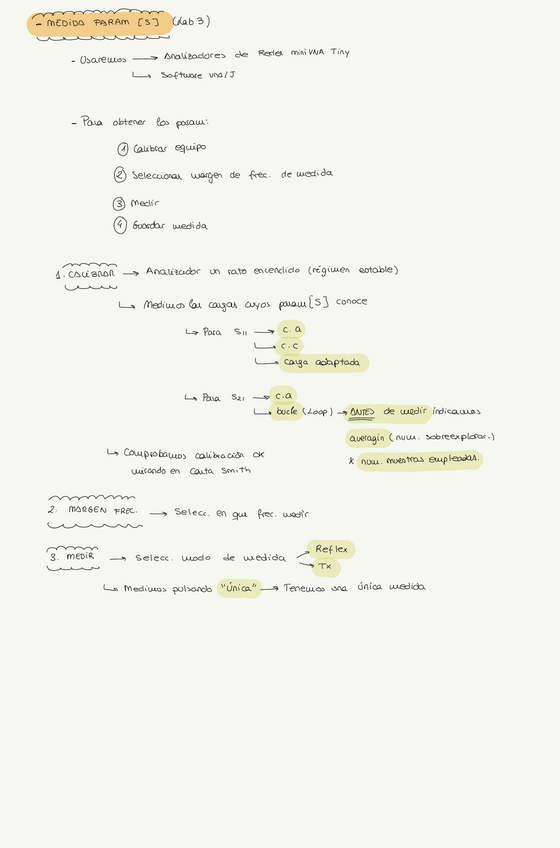 - MEDIDA PARAM [S] (Lab 3)
- Usaremos → Analizadores de Redes miniVNA Tiny
↳ Software vna/J
- Para obtener los param:
① Calibrar equipo
② Seleccionar margen de frec. de medida
③ Medir
④ Guardar medida
1. CALIBRAR → Analizador un rato encendido (régimen estable)
↳ Medimos las cargas cuyos param [S] conoce
↳ Para S11 → c.a
↳ c.c
↳ carga adaptada
↳ Para S21 → c.a
↳ bucle (Loop) → ANTES de medir indicamos
averagin (num. sobreexplorar.)
x num. muestras empleadas.
↳ Comprobamos calibración OK
mirando en Carta Smith
2. MARGEN FREC. → Selecc. en que frec. medir
3. MEDIR → Selecc. modo de medida → Reflex
→ Tx
↳ Medimos pulsando "única" → Tenemos una única medida